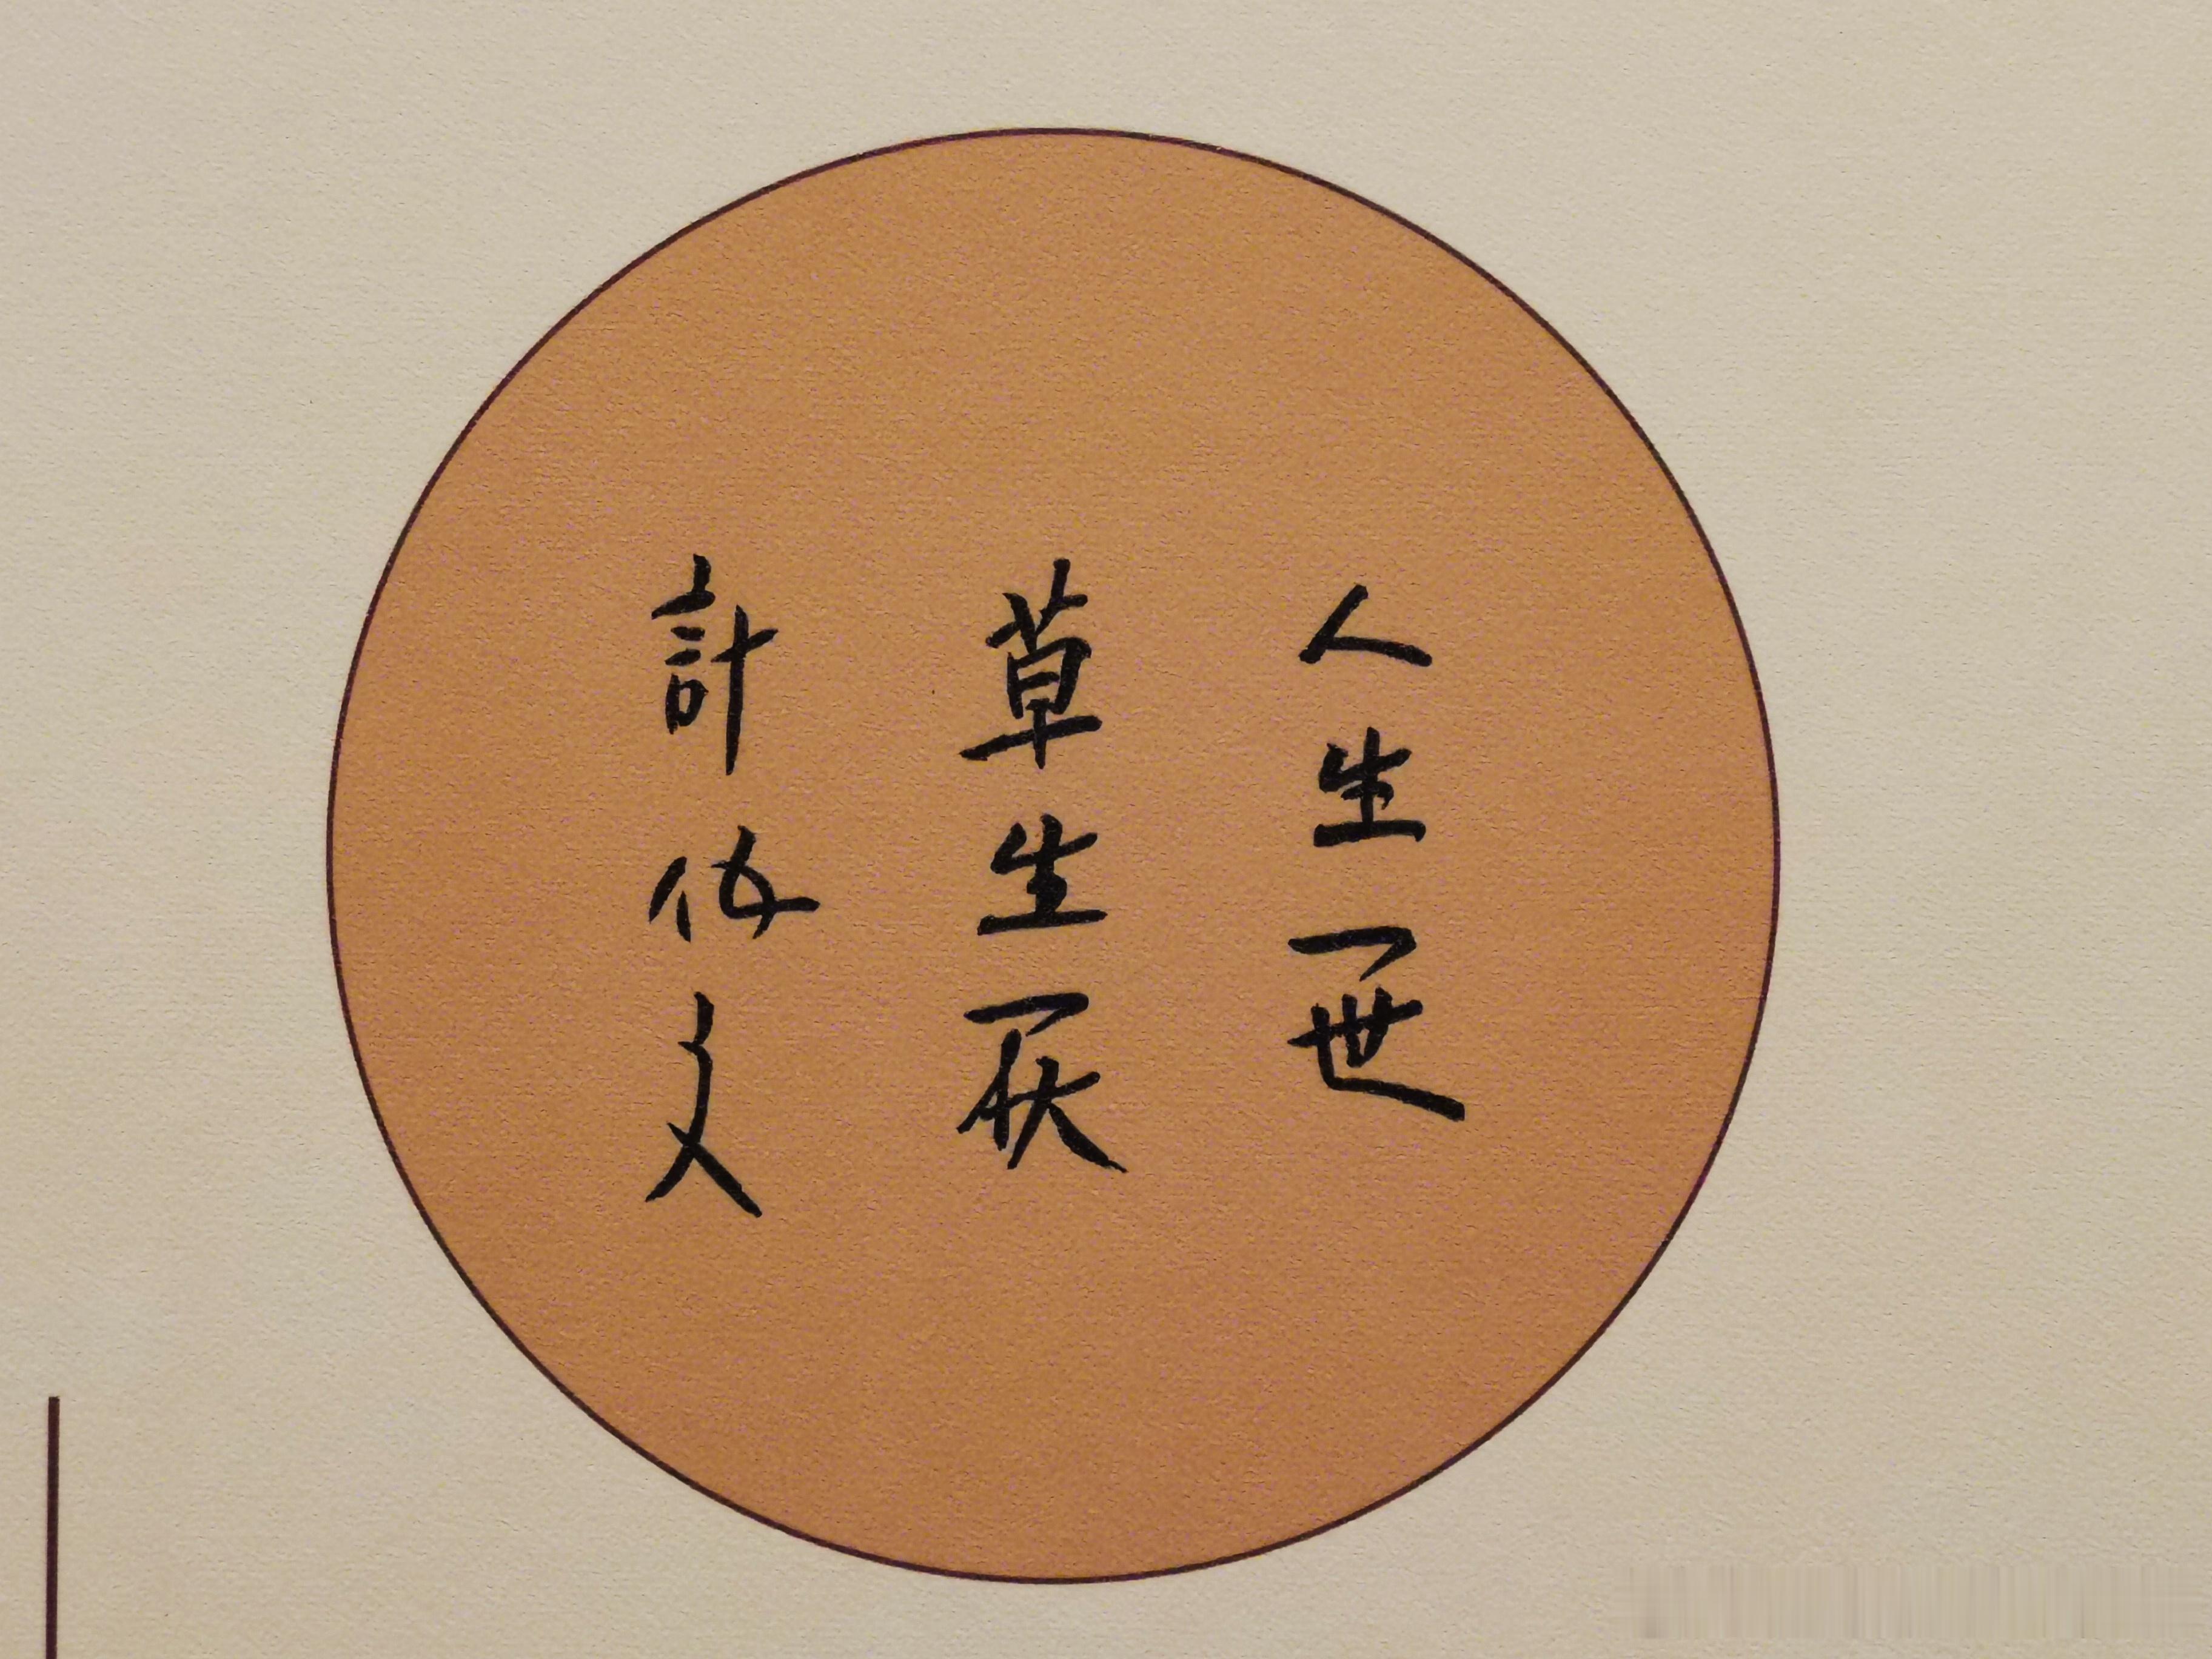 人生一世
草生一秋
計文